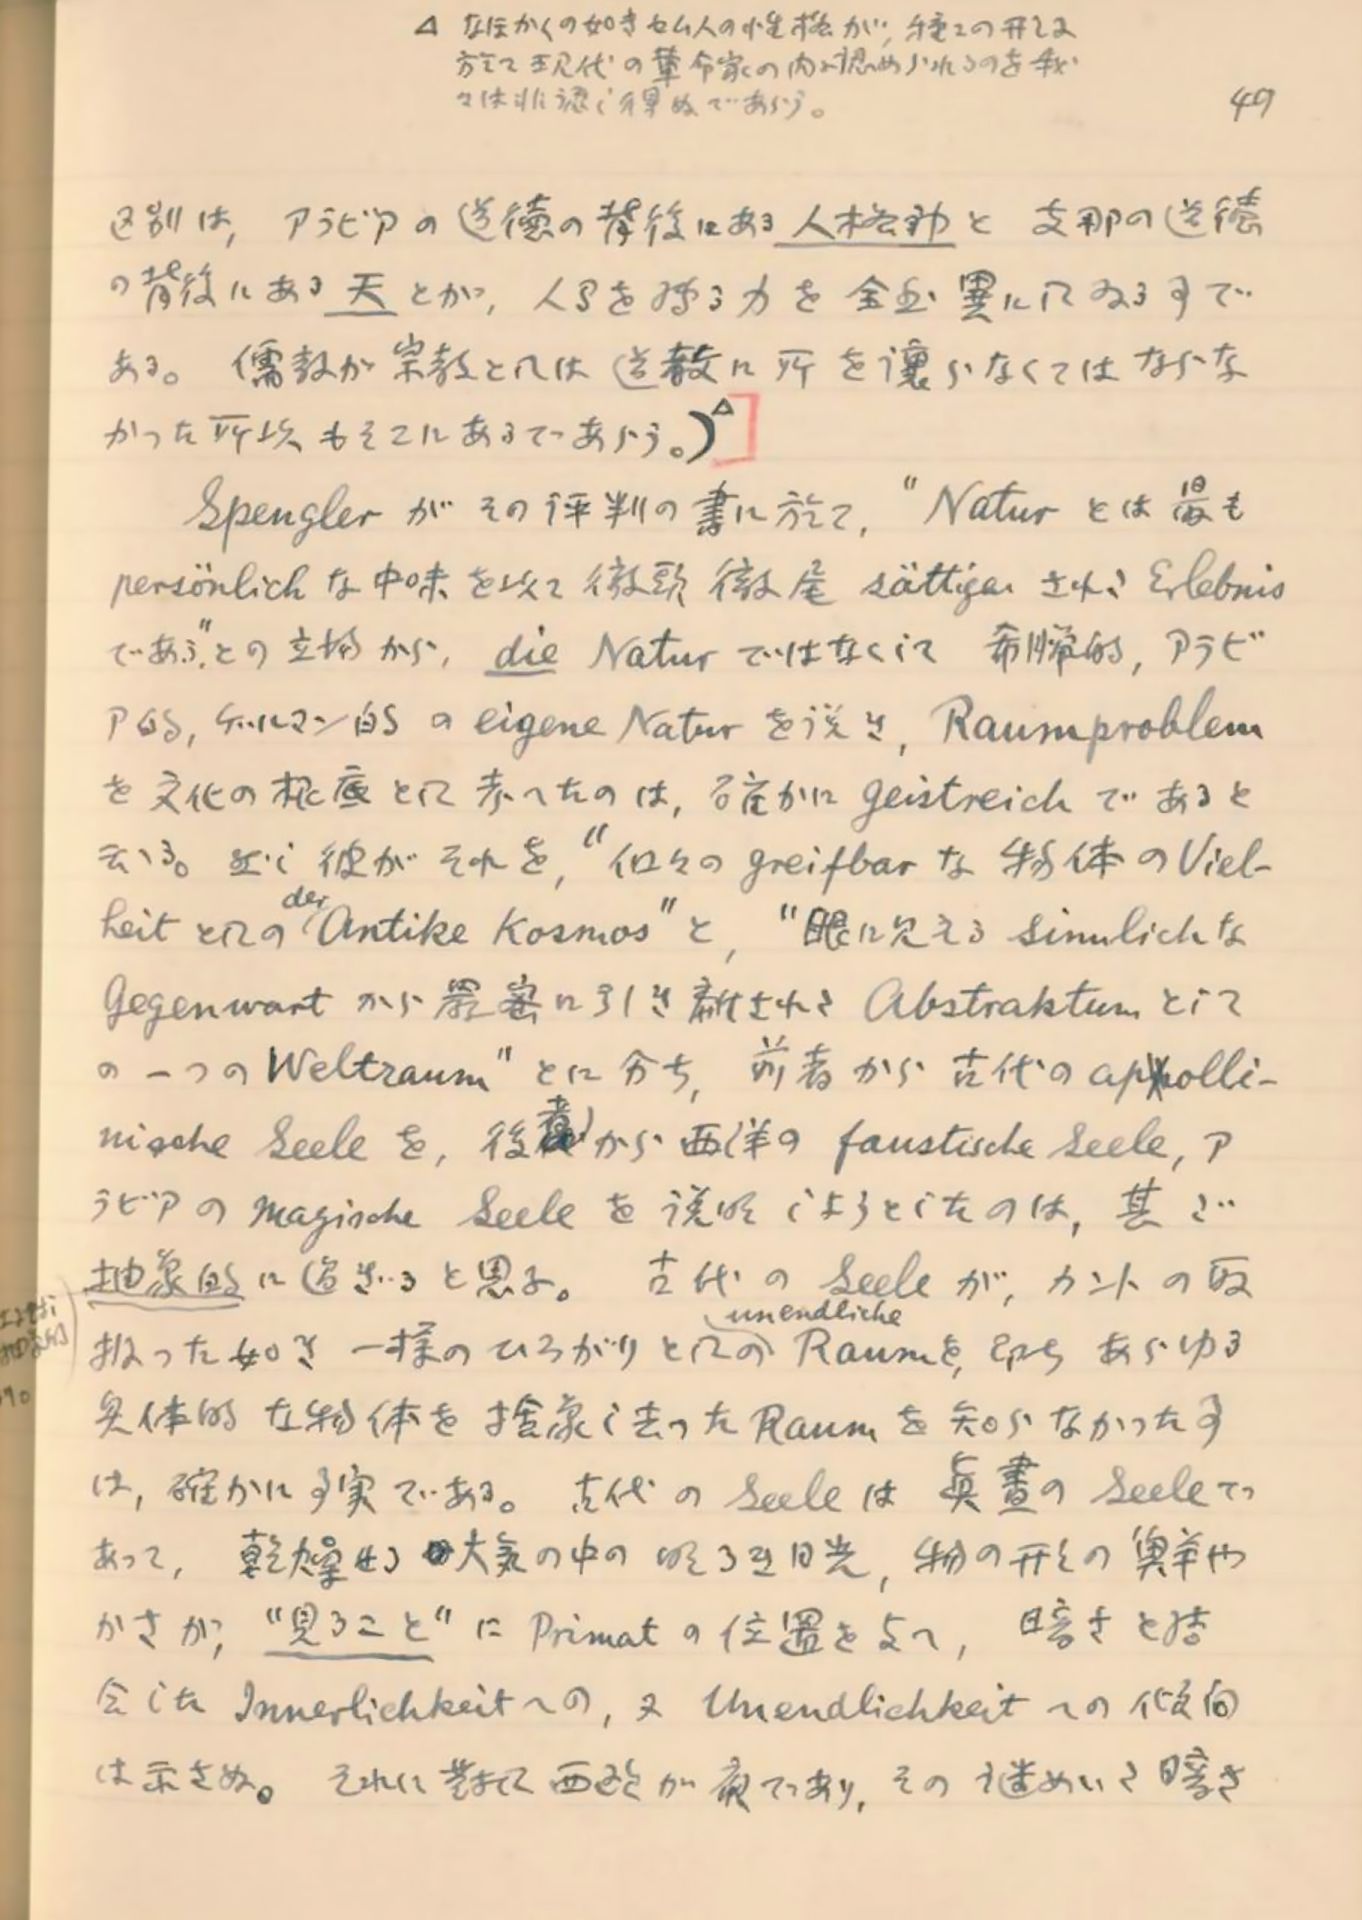 △ なほかくの如きセム人の性格が、種々の形に
於て現代の革命家の内に認められるのを我
々は非認し得ぬであらう。
49
区別は, アラビアの道徳の背後にある人格神と 支那の道徳
の背後にある天とが, 人間を縛る力を全然異にしてゐる事で
ある。 儒教が宗教としては道教に所を譲らなくてはならな
かった所以もそこにあるであらう。)△]
Spengler がその評判の書に於て, "Natur とは最も
persönlich な内味を以て徹頭徹尾 sättigen された Erlebnis
である"との立場から, die Natur ではなくして 希臘的, アラビ
ア的, ゲルマン的の eigene Natur を説き, Raumproblem
を文化の根底として考へたのは, 確かに geistreich であると
云へる。 然し彼がそれを, "個々の greifbar な物体の Viel-
heit としての der Antike Kosmos" と, "眼に見える sinnlich な
Gegenwart から厳密に引き離された Abstraktum として
の一つの Weltraum" とに分ち, 前者から古代の apolli-
nische Seele を, 後者から西洋の faustische Seele, ア
ラビアの magische Seele を説明しようとしたのは, 甚だ
抽象的に過ぎると思ふ。 古代の Seele が, カントの取
扱った如き一様のひろがりとしての unendliche Raum を, 即ちあらゆる
具体的な物体を捨象し去った Raum を知らなかった事
は, 確かに事実である。 古代の Seele は真昼の Seele で
あって, 乾燥せる大気の中の明るき日光, 物の形の鮮や
かさが, "見ること" に Primat の位置を与へ, 暗さと結
合した Innerlichkeit への, 又 Unendlichkeit への傾向
は示さぬ。 それに対して西欧が夜であり, その謎めいた暗さ